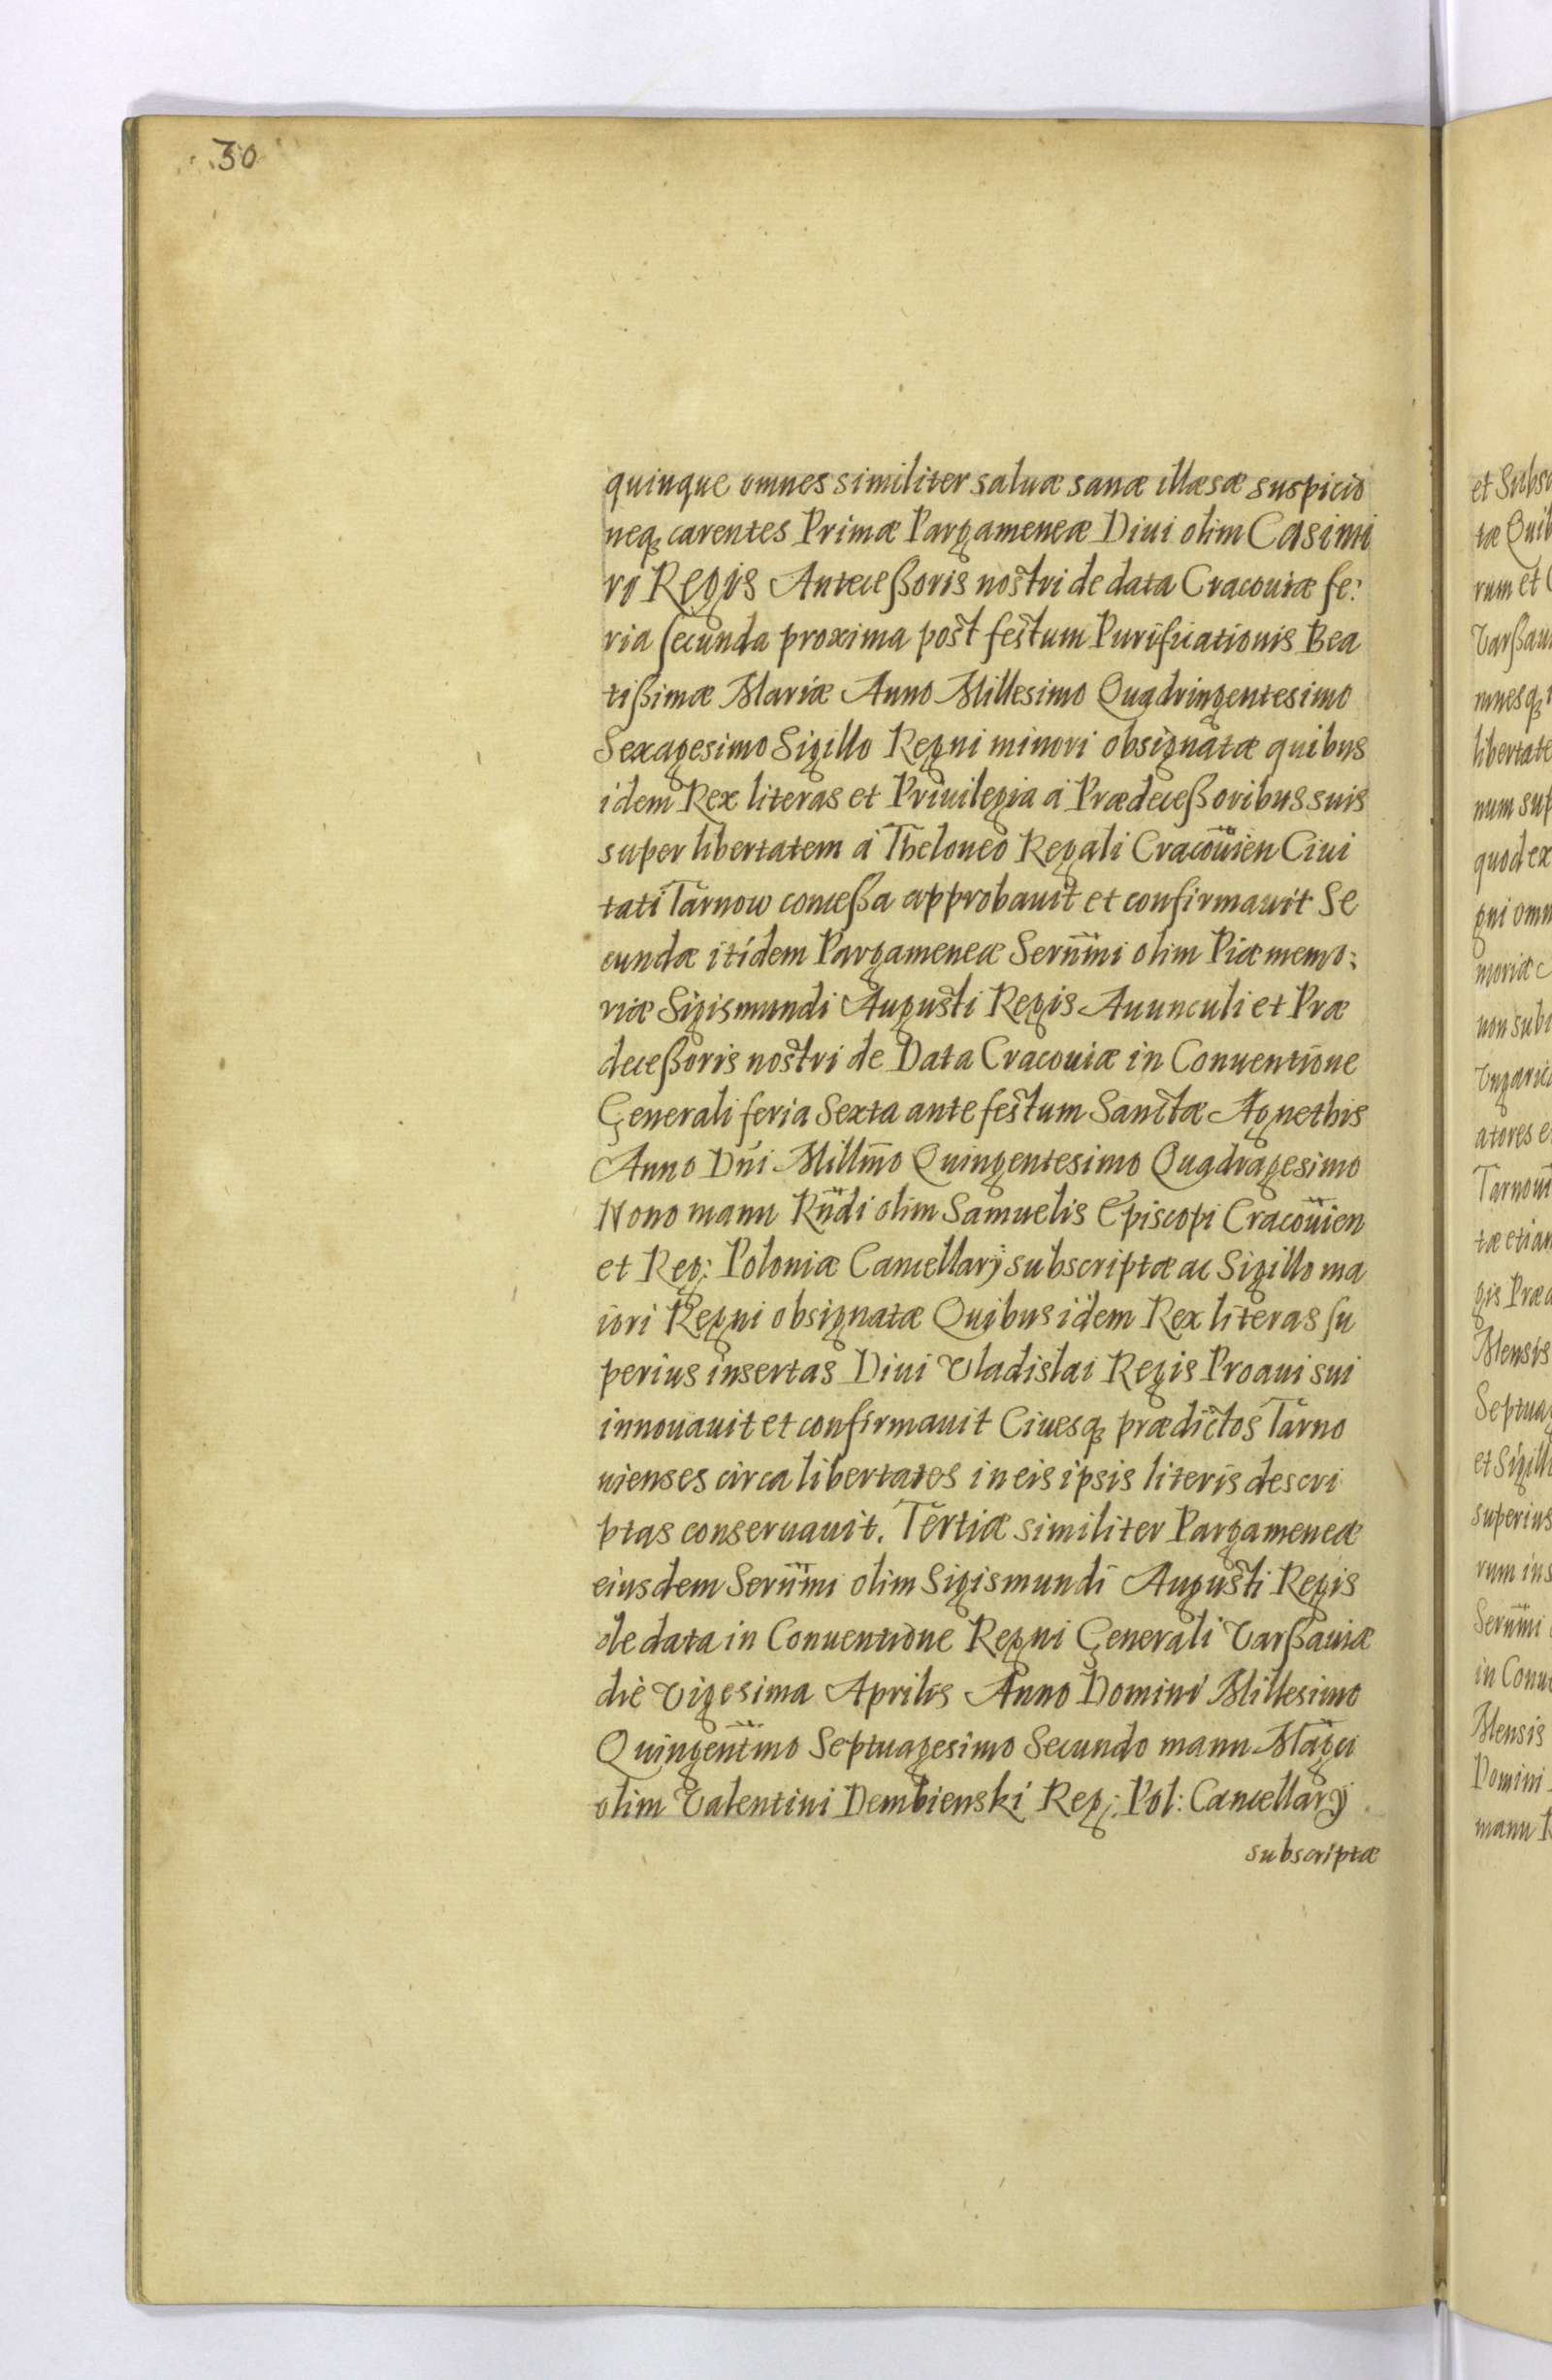 30
quinque omnes similiter saluæ sanæ illæsæ suspicio
neq; carentes Primæ Pargameneæ Diui olim Casimi
ri Regis Anteceßoris nostri de data Cracouiæ fe:
ria secunda proxima post festum Purificationis Bea
tißimæ Mariæ Anno Millesimo Quadringentesimo
Sexagesimo Sigillo Regni minori obsignatæ quibus
idem Rex literas et Priuilegia a Prædeceßoribus suis
super libertatem a Theloneo Regali Cracouien Ciui
tati Tarnow conceßa approbauit et confirmauit Se
cundæ itidem Pargameneæ Sernmi olim Piæ memo:
riæ Sigismundi Augusti Regis Auunculi et Præ
deceßoris nostri de Data Cracouiæ in Conuentione
Generali feria Sexta ante festum Sanctæ Agnethis
Anno Dni Millmo Quingentesimo Quadragesimo
Nono manu Rndi olim Samuelis Episcopi Cracouien
et Reg: Poloniæ Cancellarij subscriptæ ac Sigillo ma
iori Regni obsignatæ Quibus idem Rex literas su
perius insertas Diui Vladislai Regis Proaui sui
innouauit et confirmauit Ciuesq; prædictos Tarno
uienses circa libertates in eis ipsis literis descri
ptas conseruauit. Tertiæ similiter Pargameneæ
eiusdem Sernmi olim Sigismundi Augusti Regis
de data in Conuentione Regni Generali Varßauiæ
die Vigesima Aprilis Anno Domini Millesimo
Quingentmo Septuagesimo Secundo manu Magci
olim Valentini Dembienski Reg: Pol: Cancellarij
subscriptæ